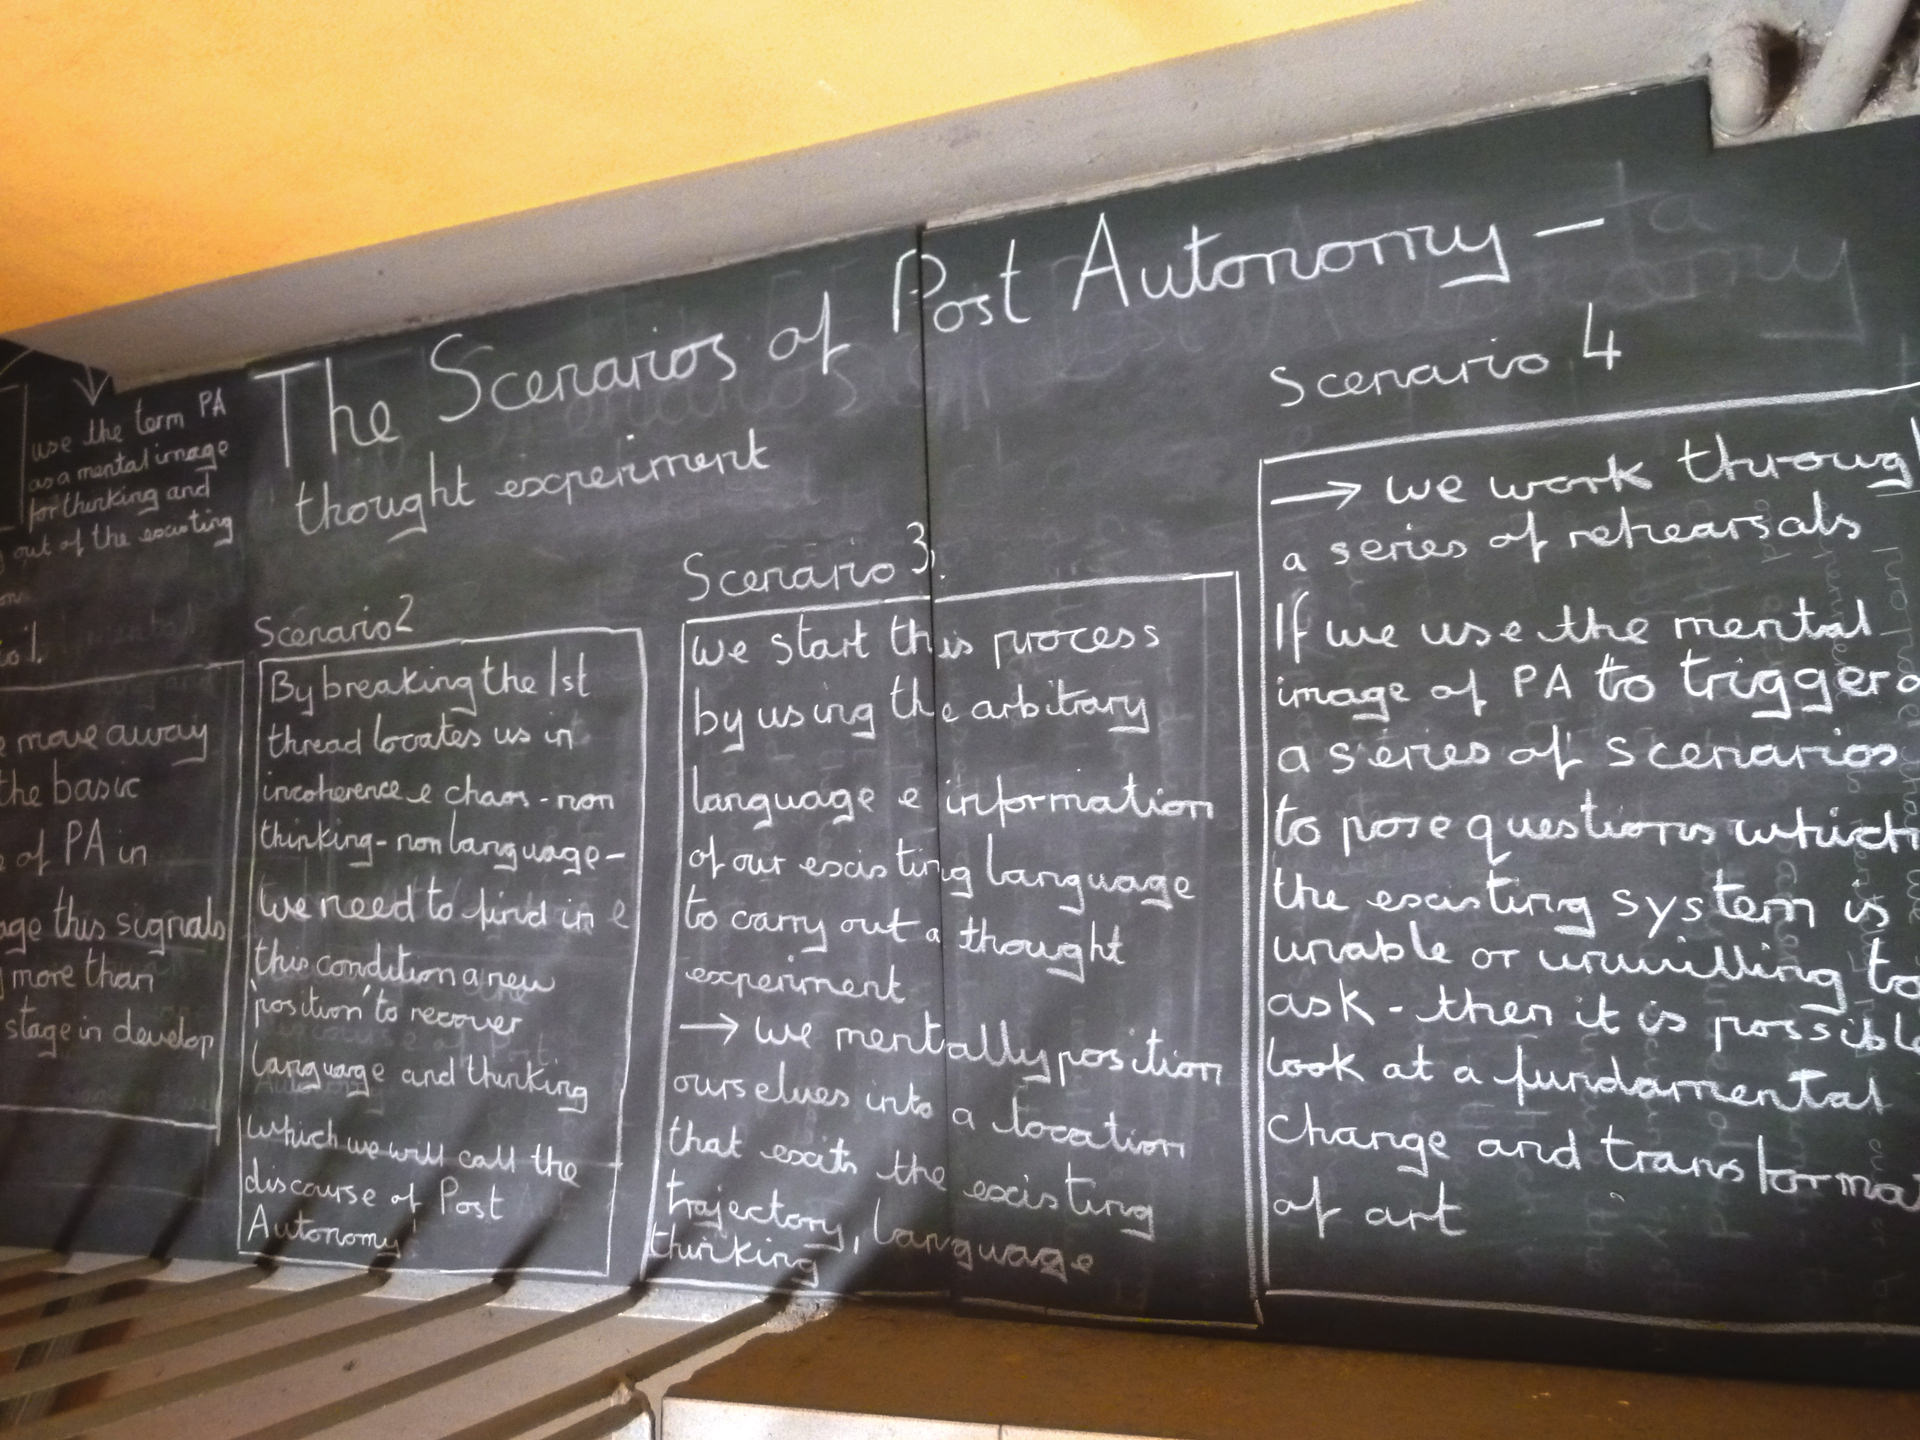 The Scenarios of Post Autonomy —
thought experiment
use the term PA
as a mental image
for thinking and
out of the existing
move away
the basic
of PA in
this signals
more than
stage in develop
Scenario 2
By breaking the 1st
thread locates us in
incoherence e chaos - non
thinking - non language -
we need to find in e
this condition a new
'position' to recover
language and thinking
which we will call the
discourse of Post
Autonomy
Scenario 3.
we start this process
by using the arbitrary
language e information
of our existing language
to carry out a thought
experiment
→ we mentally position
ourselves into a location
that exits the existing
trajectory, language
thinking
Scenario 4
→ we work through
a series of rehearsals
If we use the mental
image of PA to trigger
a series of scenarios
to pose questions which
the existing system is
unable or unwilling to
ask - then it is possible
look at a fundamental
change and transforma
of art